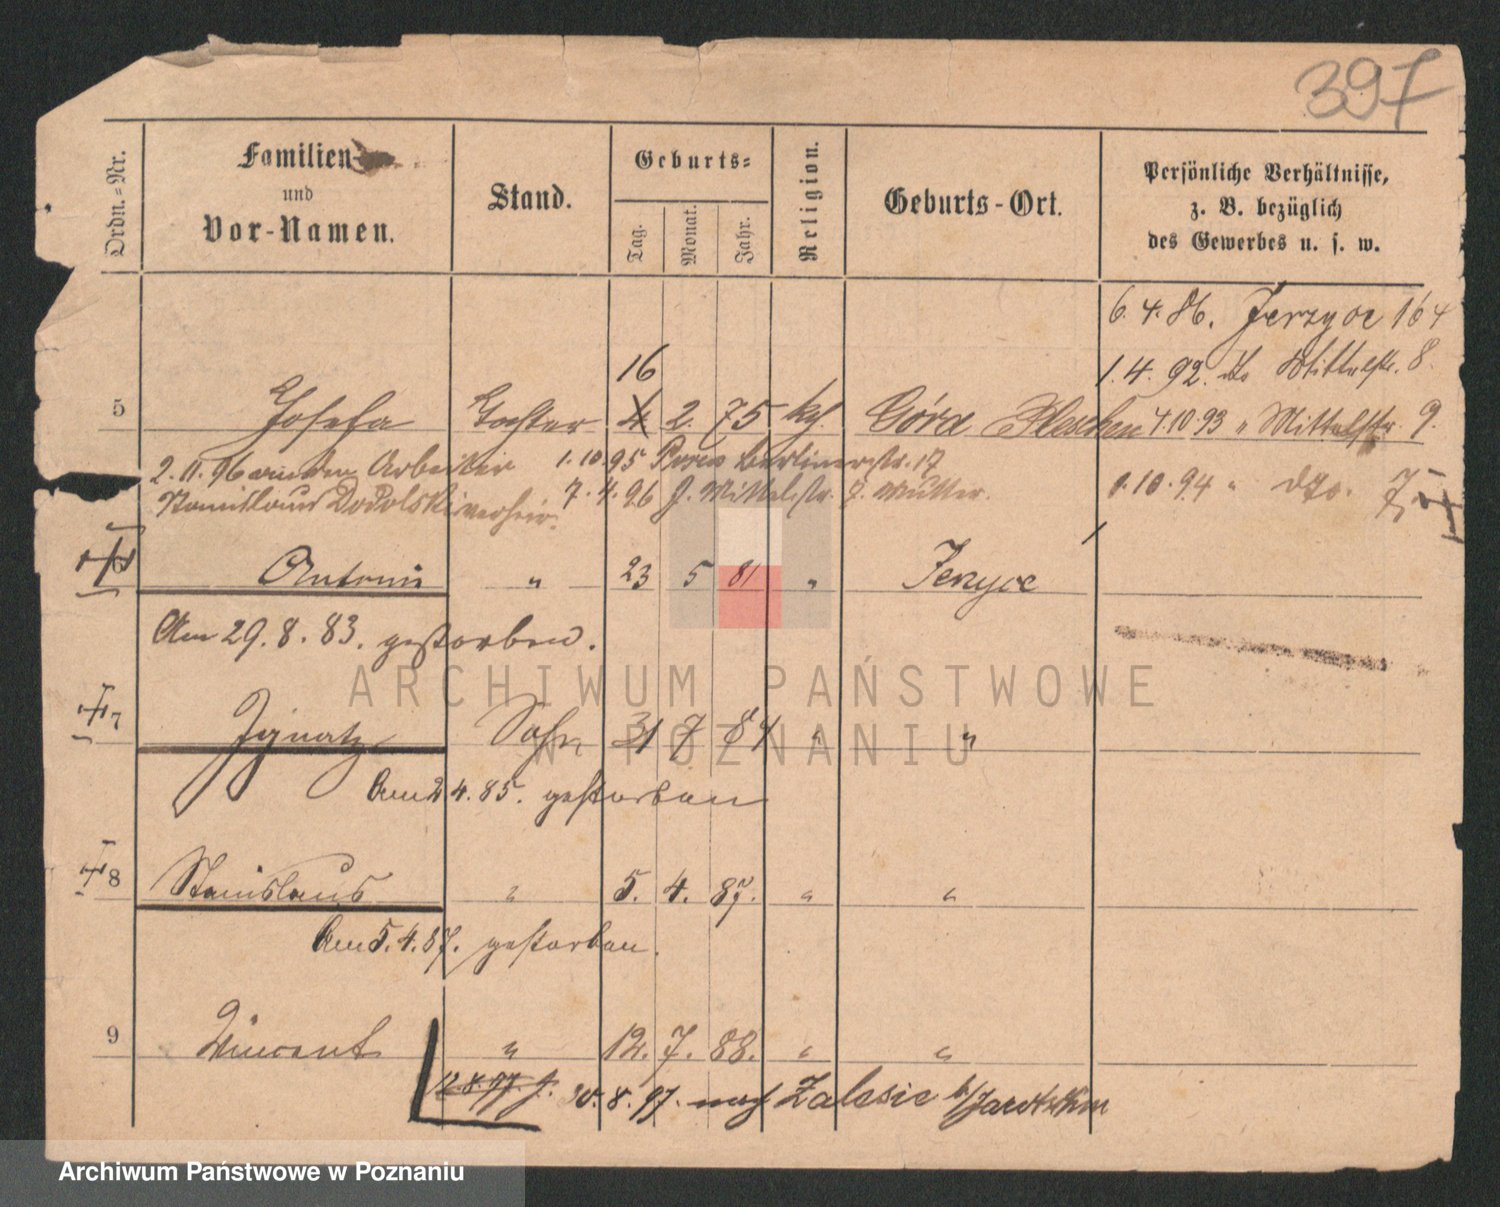 397
Ordn.-Nr.
Familien-
und
Vor-Namen.
Stand.
Geburts-
Tag.
Monat.
Jahr.
Religion.
Geburts-Ort.
Persönliche Verhältnisse,
z. B. bezüglich
des Gewerbes u. s. w.
6. 4. 86. Jerzyce 164
16
1. 4. 92. do Mittelstr. 8.
5 Josefa Tochter 4 2. 75 kth. Góra Pleschen 4.10.93 " Mittelstr. 9.
2.11.96 an den Arbeiter 1.10.95 Posen Berlinerstr. 17
Stanislaus Dopolski verheir. 7. 4. 96 J. Mittelstr. 7. Mutter. 1.10.94 " dto. 7
6 Antonie " 23 5 81 " Jerzyce
Am 29. 8. 83. gestorben.
7 Ignatz Sohn 31 7 84 " "
Am 2 4. 85. gestorben
8 Stanislaus " 5. 4. 87. " "
Am 5. 4. 87. gestorben.
9 Vincent " 12. 7. 88. " "
12.8.97. J. 30. 8. 97. nach Zalesie b/Jarotschin
ARCHIWUM PAŃSTWOWE
W POZNANIU
Archiwum Państwowe w Poznaniu